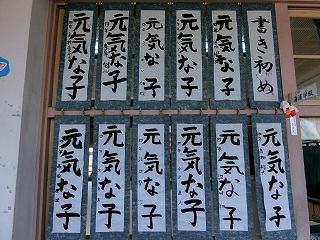 書き初め
元気な子
元気な子
元気な子
元気な子
元気な子
元気な子
元気な子
元気な子
元気な子
元気な子
元気な子